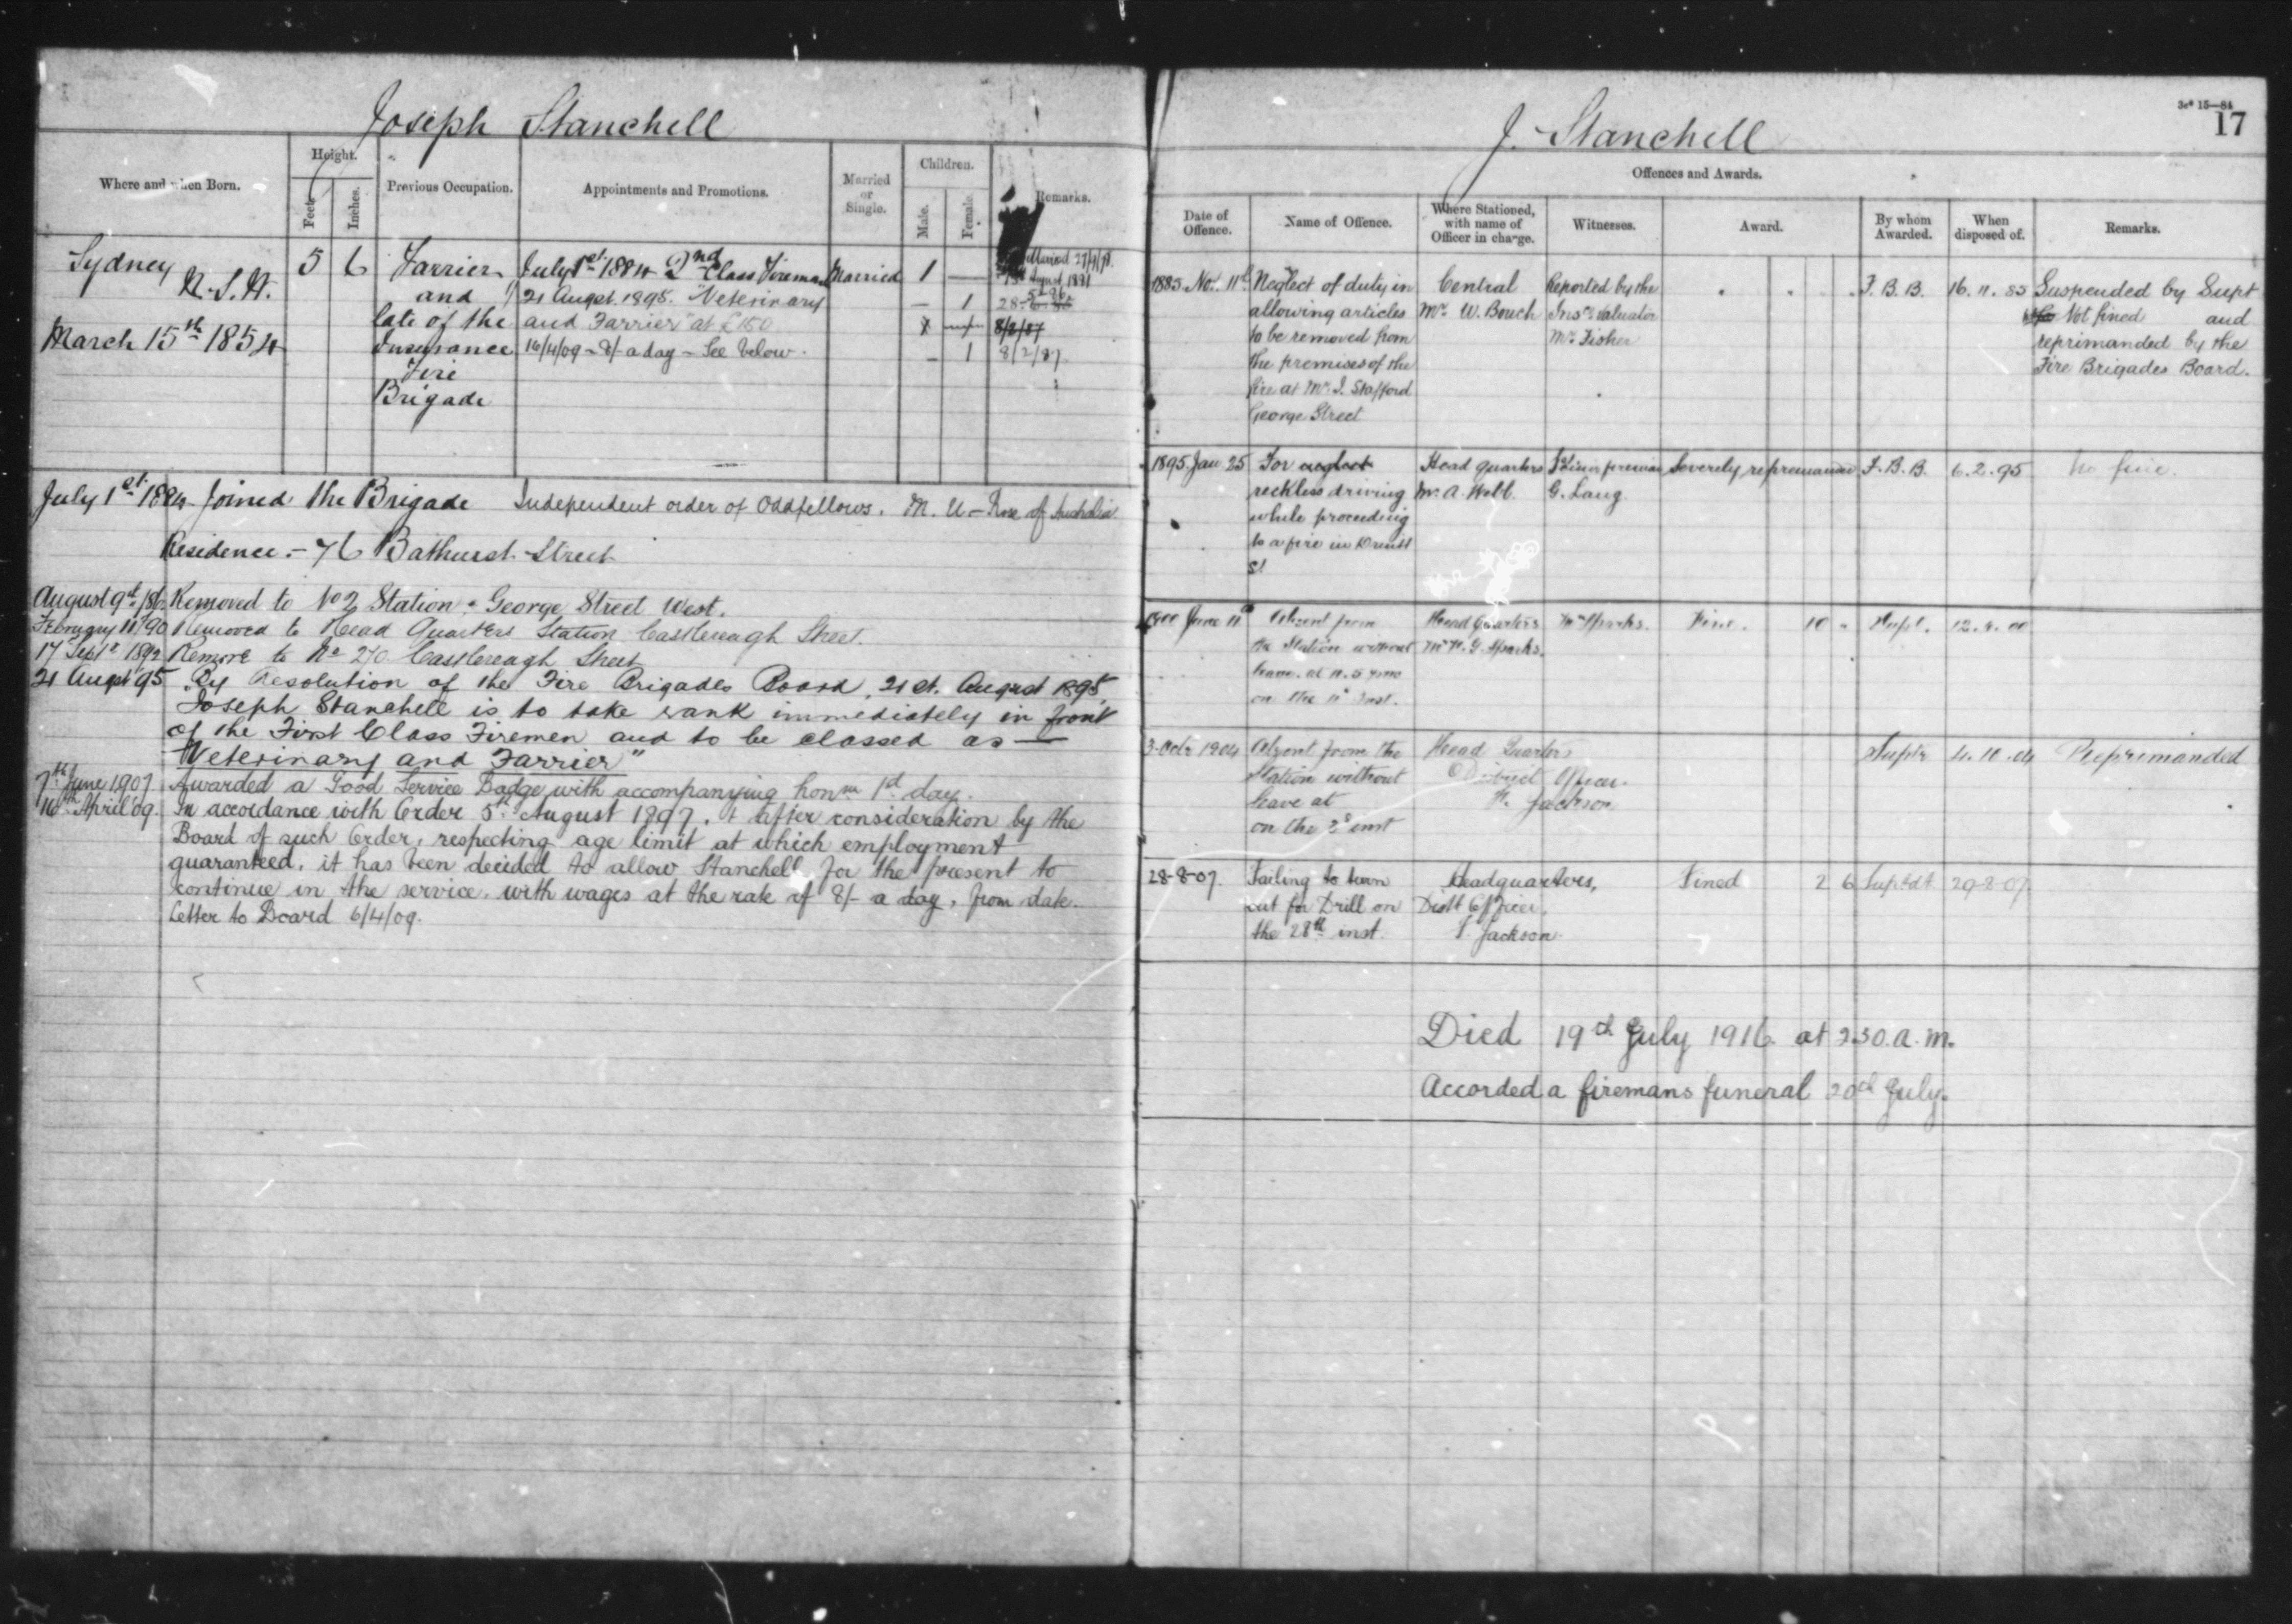 Joseph Stanchell
Where and when Born.
Height.
Feet.
Inches.
Previous Occupation.
Appointments and Promotions.
Married or Single.
Children.
Male.
Female.
Remarks.
Sydney
N.S.W.
March 15th 1854
5 6
Farrier
and
late of the
Insurance
Fire
Brigade
July 1st 1884 2nd Class Fireman
21 August 1895. "Veterinary
and Farrier" at £150
16/4/09 - 8/ a day - See below.
Married
1 —
— 1
— 1 8/2/87
8/2/87
July 1st 1884 Joined the Brigade Independent order of Oddfellows. M. U - Rose of Australia
Residence. - 76 Bathurst Street
August 9th /86 Removed to No 2 Station. George Street West.
February 11/90 Removed to Head Quarters Station Castlereagh Street.
17 Sept 1892 Remove to No 270 Castlereagh Street
21 August 95 By Resolution of the Fire Brigades Board, 21st. August 1895,
Joseph Stanchell is to take rank immediately in front
of the First Class Firemen and to be classed as —
"Veterinary and Farrier"
7th June 1907 Awarded a Good Service Badge with accompanying 1d day.
16th April 09. In accordance with Order 5th August 1897, & after consideration by the
Board of such Order, respecting age limit at which employment
guaranteed, it has been decided to allow Stanchell for the present to
continue in the service, with wages at the rate of 8/- a day, from date.
Letter to Board 6/4/09.
3c* 15—84
17
J. Stanchell
Offences and Awards.
Date of Offence.
Name of Offence.
Where Stationed, with name of Officer in charge.
Witnesses.
Award.
By whom Awarded.
When disposed of.
Remarks.
1885 Nov. 11th
Neglect of duty in
allowing articles
to be removed from
the premises of the
fire at Mr. J. Stafford
George Street
Central
Mr. W. Bouch
Reported by the
Insce Valuator
Mr. Fisher
F. B. B.
16. 11. 85
Suspended by Supt
Not fined and
reprimanded by the
Fire Brigades Board.
1895 Jan 25
For neglect
reckless driving
while proceeding
to a fire in
St
Head quarters
Mr. A. Webb.
G. Lang
Severely reprimanded
F. B. B.
6. 2. 95
No fine.
1900 June 11th
Absent from
the Station without
leave. at 11.5 pm
on the 11th Inst.
Head Quarters
Mr. N. G. Sparks.
Mr Sparks.
Fine.
10 "
Supt.
3 Octr 1904
Absent from the
Station without
leave at
on the 2d inst
Head Quarters
District Officer
N. Jackson
Suptr
4. 10. 04
Reprimanded
28-8-07.
Failing to turn
out for Drill on
the 28th inst.
Headquarters,
Distt Officer,
Jackson.
Fined
2 6
Suptdt.
29-8-07
Died 19th July 1916 at 2.30. a.m.
Accorded a firemans funeral 20th July.